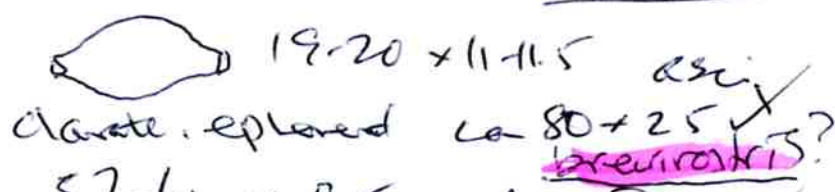 19-20 × 11-11.5 asci
clavate. ephemeral ca 80 × 25 ✓
brevirostris?